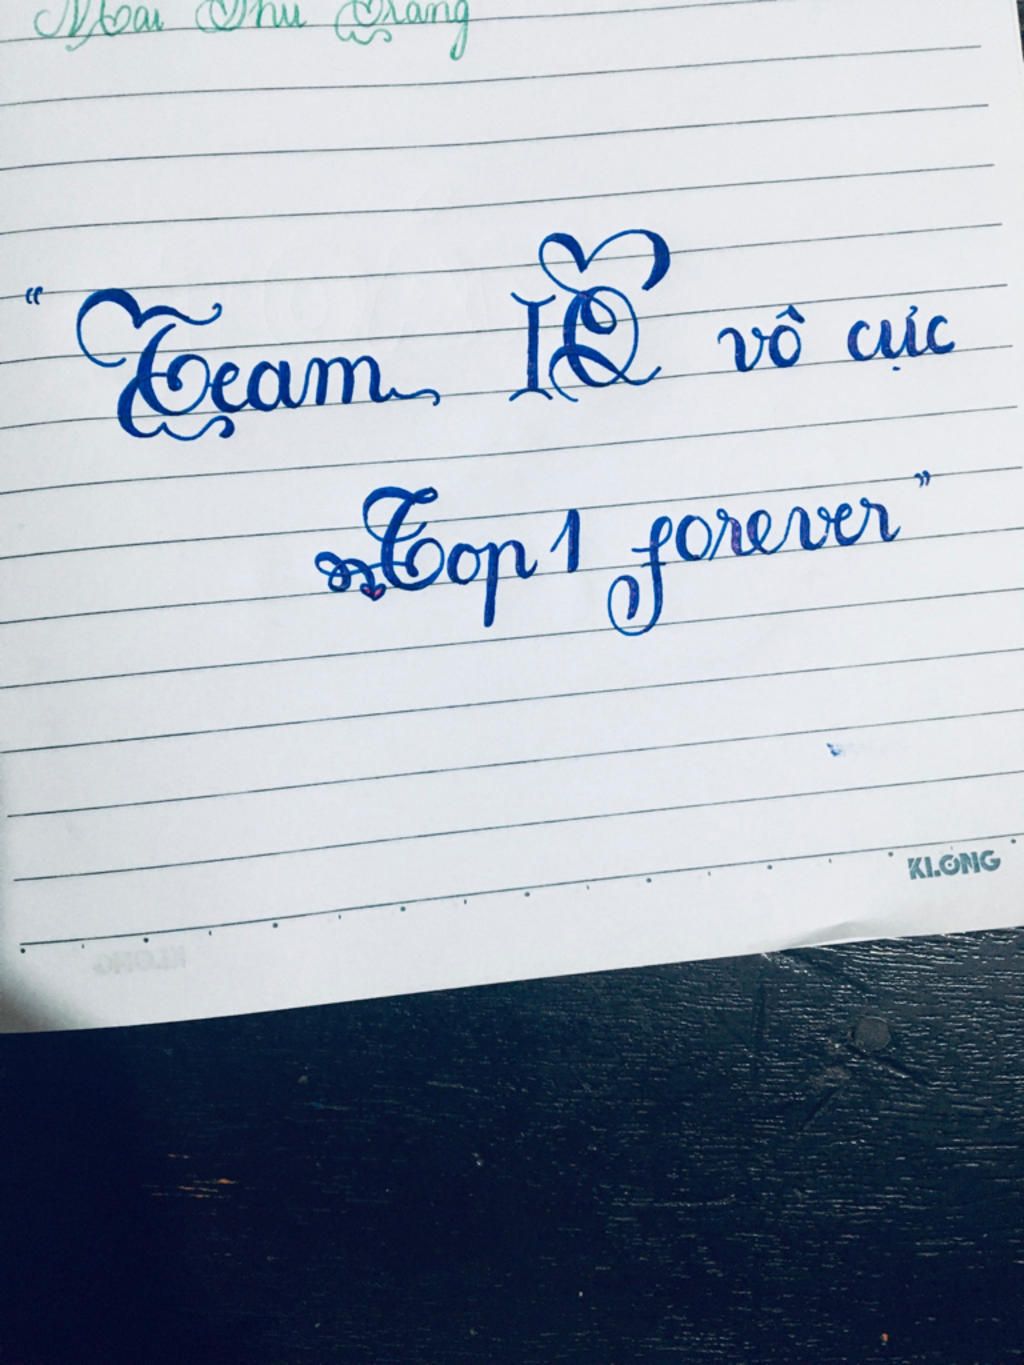 Mai Thu Trang
“Team IQ vô cực
Top 1 forever”
KLONG